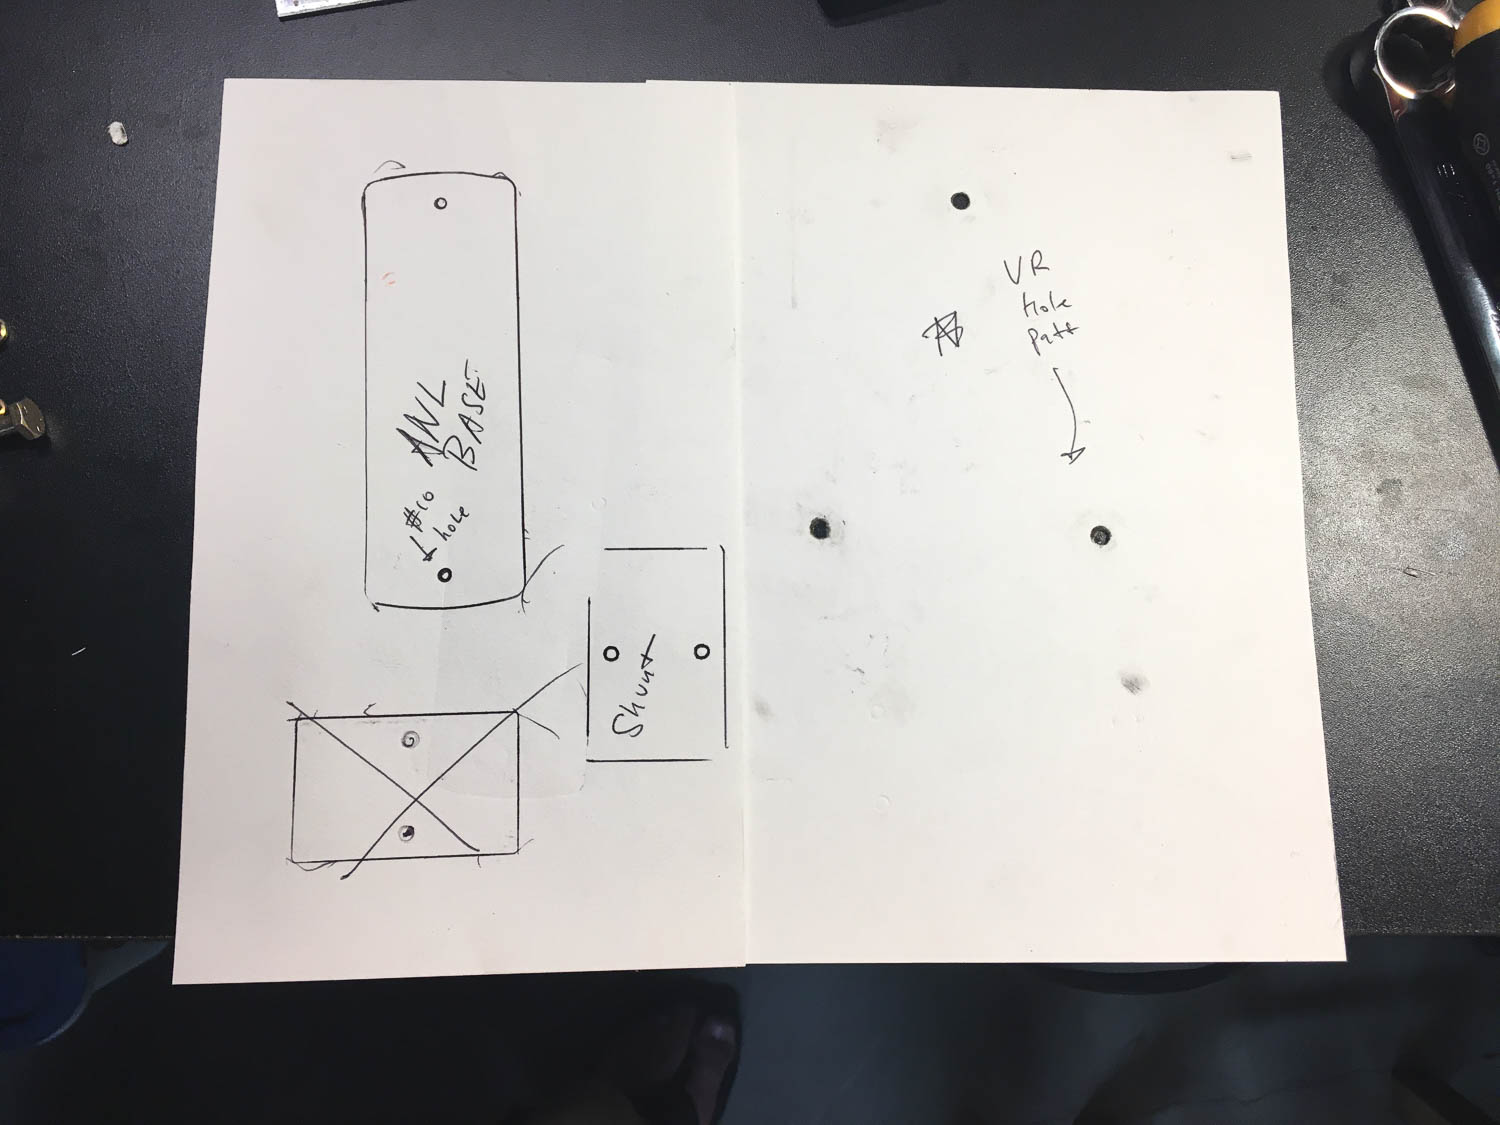 ANL
BASE
#10
hole
Shunt
VR
Hole
patt